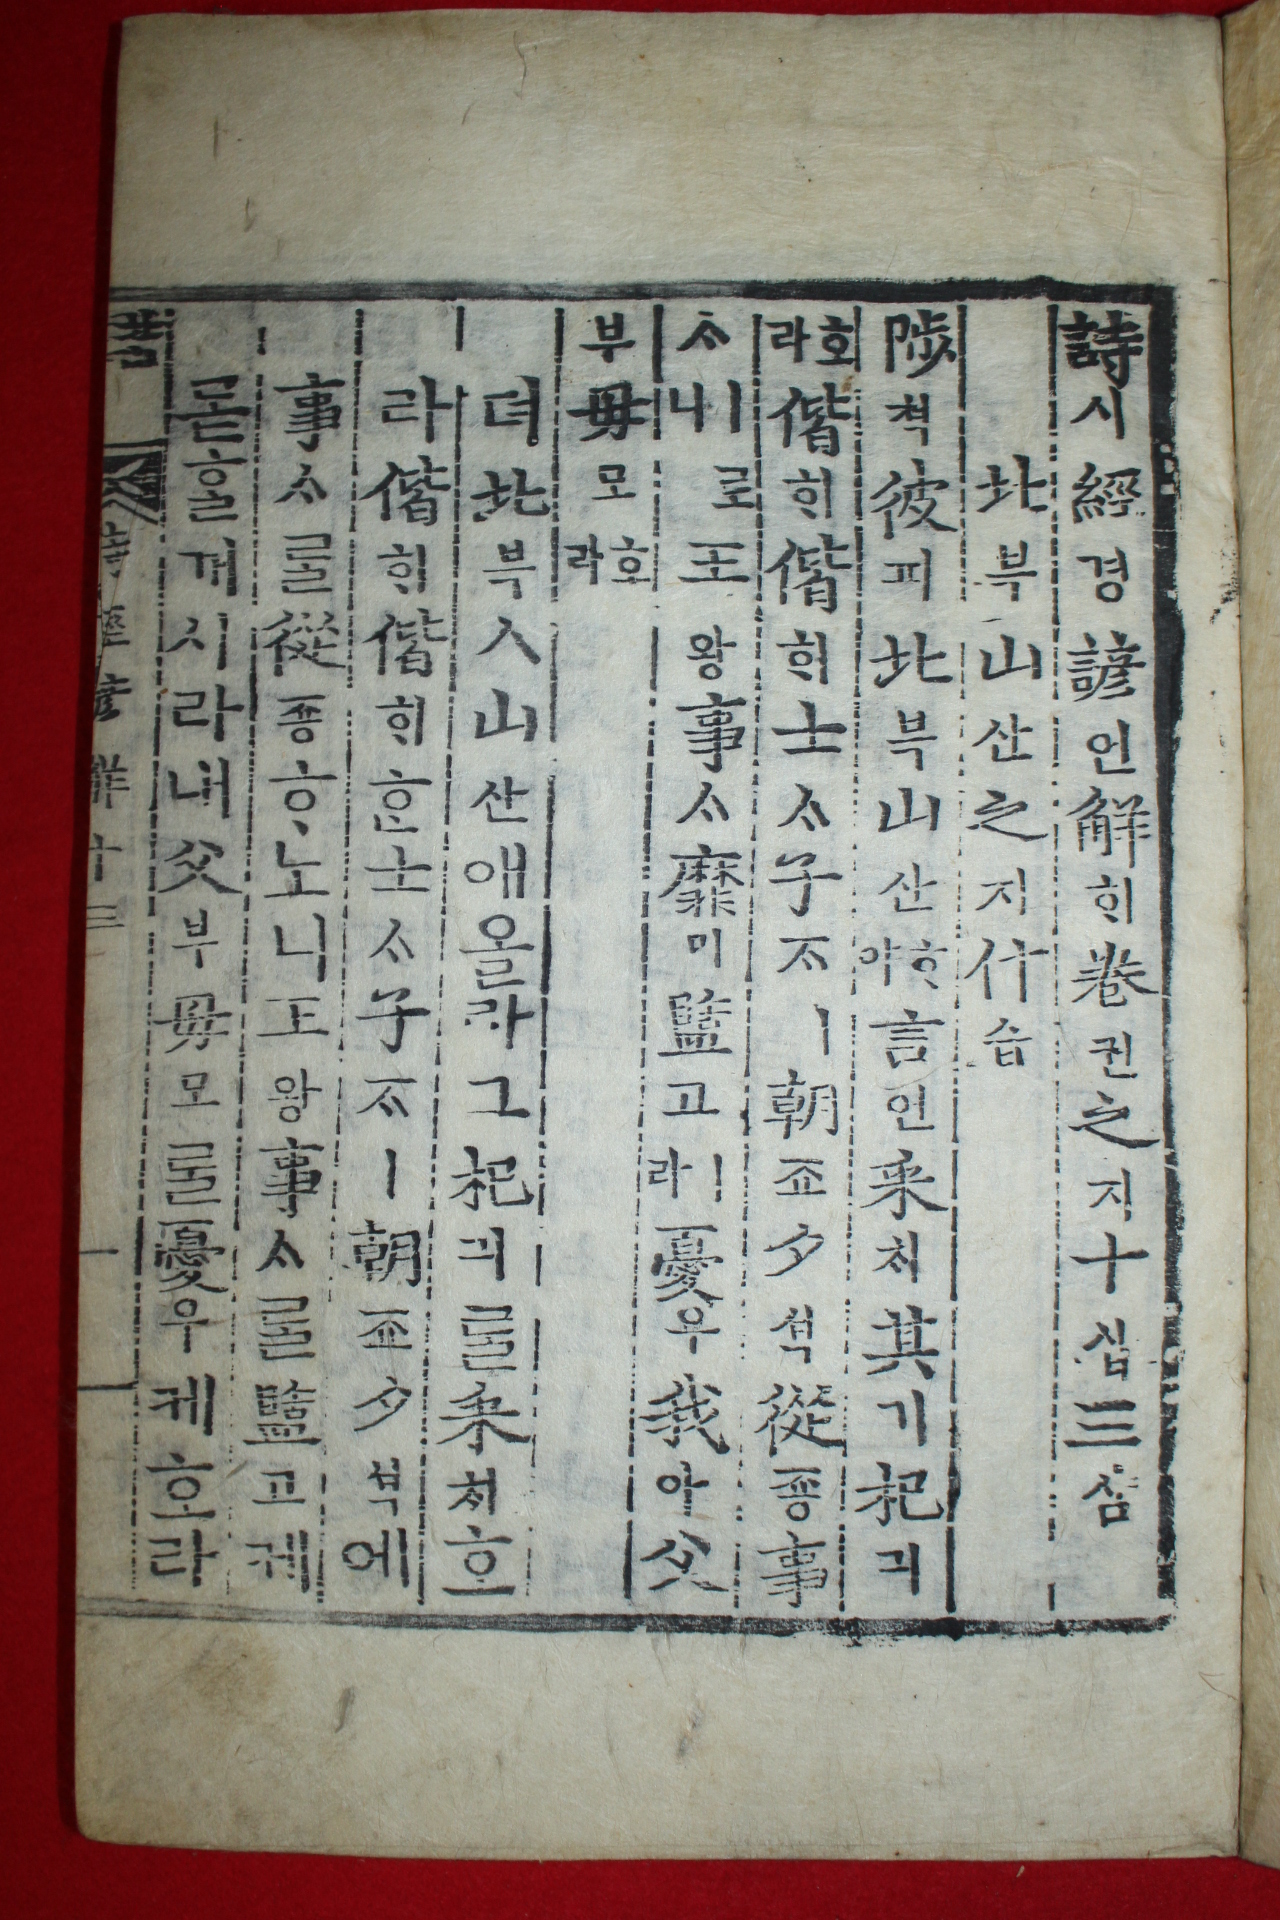 詩시經경諺언解ᄒᆡ卷권之지十십三삼
北븍山산之지什습
陟쳑彼피北븍山산ᄒᆞ야言언采ᄎᆡ其기杞긔
호라偕ᄒᆡ偕ᄒᆡ士ᄉᆞ子ᄌᆞㅣ朝죠夕셕從죵事
ᄉᆞㅣ로니王왕事ᄉᆞ靡미盬고ㅣ라憂우我아父
부母모호라
뎌北븍ㅅ山산애올라그杞긔를采ᄎᆡ호
라偕ᄒᆡ偕ᄒᆡᄒᆞᆫ士ᄉᆞ子ᄌᆞㅣ朝죠夕셕에
事ᄉᆞ를從죵ᄒᆞ노니王왕事ᄉᆞ를盬고케
몯ᄒᆞᆯ꺼시라내父부母모를憂우케호라
詩經諺解十三